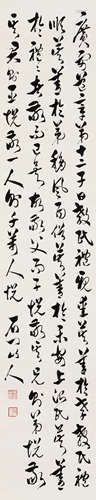 廣要道章第十二子曰教民親愛莫善於孝教民禮
順莫善於弟移風易俗莫善於樂安上治民莫善
於禮禮者敬而已矣故敬其父則子悅敬其兄則弟悅敬
其君則臣悅敬一人則千萬人悅 石門山人